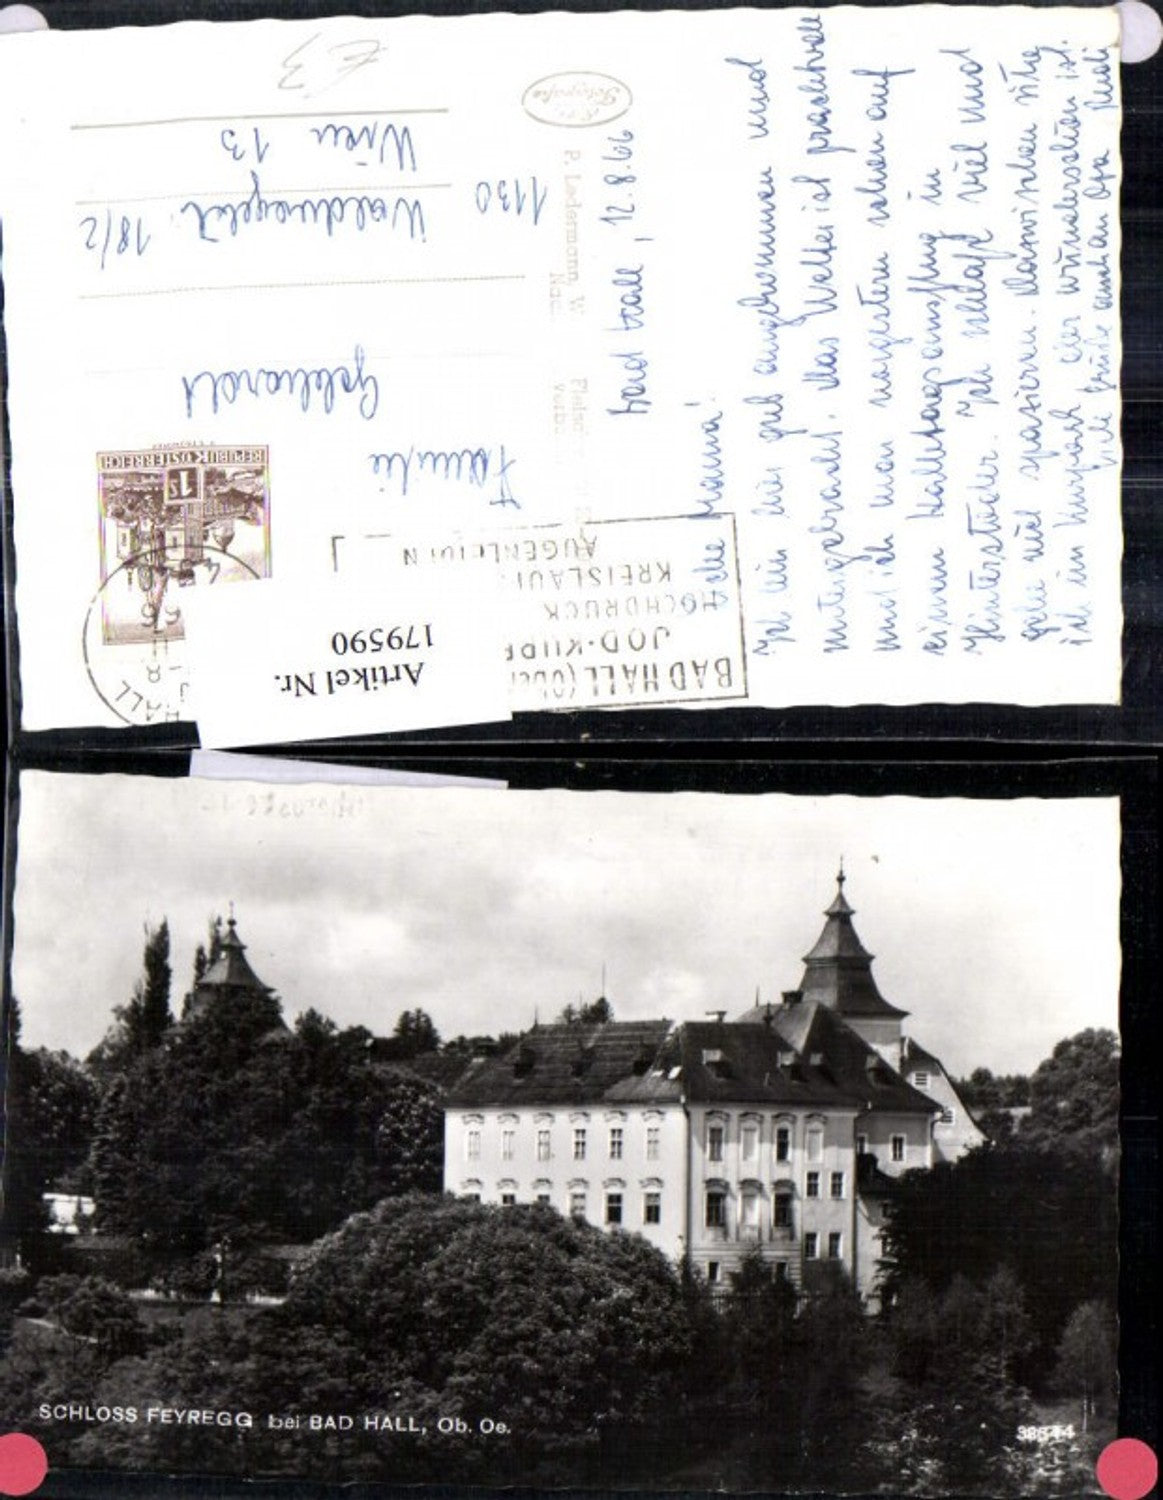 Bad Hall, 12.8.66
Liebe Mama!
Ich bin hier gut angekommen und
untergebracht. Das Wetter ist prachtvoll
und ich war vorgestern schon auf
einem Halbtagsausflug in
Hinterstoder. Ich schlafe viel und
gehe viel spazieren. Dazwischen sitze
ich im Kurpark, der wunderschön ist.
Viele Grüße auch an Opa
Familie
Gebhardt
18/2
1130
Wien 13
P. Ledermann, W
REPUBLIK ÖSTERREICH
1S
BAD HALL
JOD-KUR
HOCHDRUCK
KREISLAUF
AUGENLEIDEN
Artikel Nr.
179590
SCHLOSS FEYREGG bei BAD HALL, Ob. Oe.